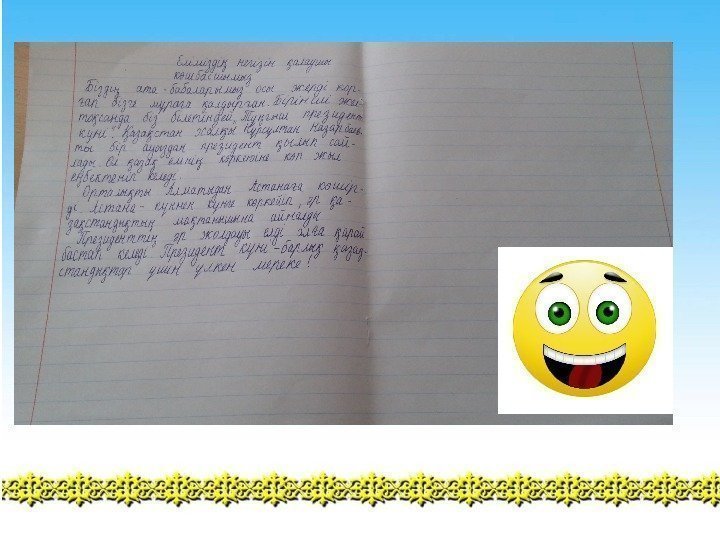 Еліміздің негізін қалаушы
көшбасшымыз
Біздің ата-бабаларымыз осы жерді қор-
ғап бізге мұраға қалдырған. Бірінші жел-
тоқсанда біз білетіндей, Тұңғыш президент
күні". Қазақстан халқы Нұрсұлтан Назарбаев-
ты бір ауыздан президент қылып сай-
лады. Ол қазақ елінің көркеюіне көп жыл
еңбектеніп келеді.
Орталықты Алматыдан Астанаға көшір-
ді. Астана - күннен күнге көркейіп, әр қа-
зақстандықтың мақтанышына айналды.
Президенттің әр жолдауы елді алға қарай
бастап келеді. Президент күні - барлық қазақ-
стандықтар үшін үлкен мереке!